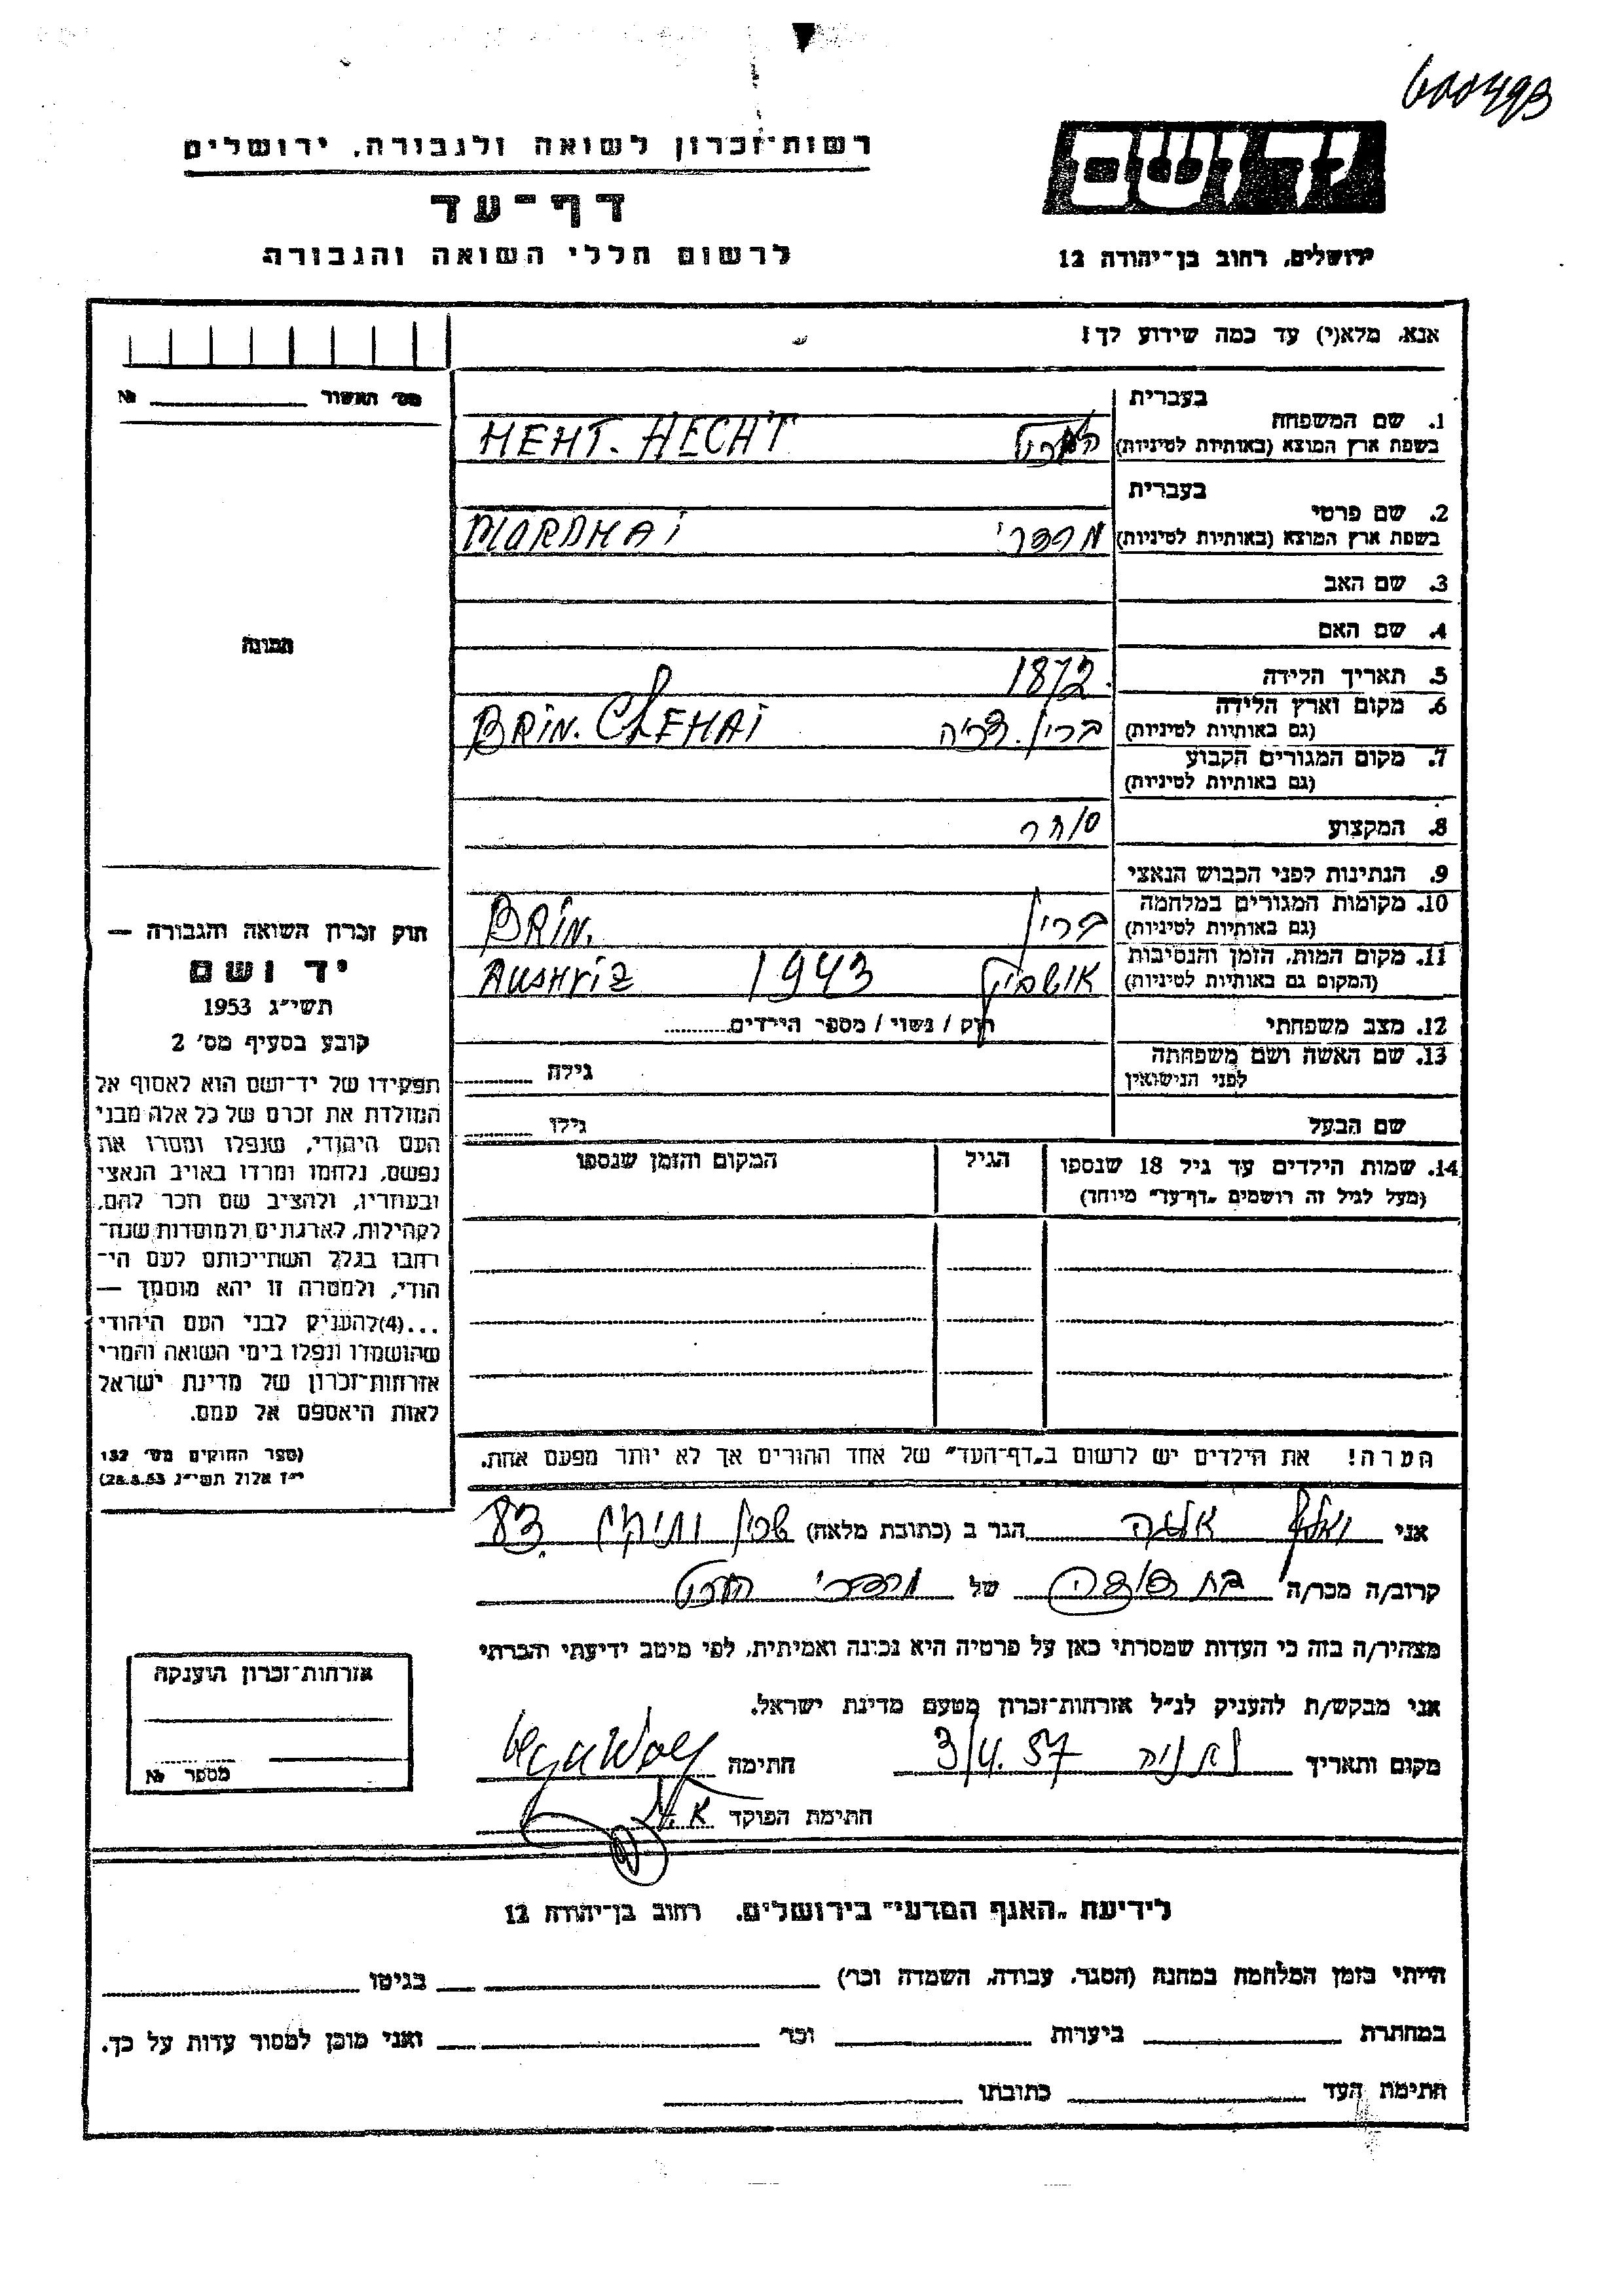 600493
יד ושם
ירושלים, רחוב בן־יהודה 12
רשות־זכרון לשואה ולגבורה, ירושלים
דף־עד
לרשום חללי השואה והגבורה
אנא, מלא(י) עד כמה שידוע לך!
מס׳ האשור № 
בעברית
1. שם המשפחה
בשפת ארץ המוצא (באותיות לטיניות) HEHT. HECHT
בעברית
2. שם פרטי
בשפת ארץ המוצא (באותיות לטיניות) מרדכי MORDHAI
3. שם האב
4. שם האם
5. תאריך הלידה 1872
6. מקום וארץ הלידה ברין. BRIN.
(גם באותיות לטיניות)
7. מקום המגורים הקבוע
(גם באותיות לטיניות)
8. המקצוע סוחר
9. הנתינות לפני הכבוש הנאצי
10. מקומות המגורים במלחמה ברין BRIN.
(גם באותיות לטיניות)
11. מקום המות, הזמן והנסיבות 1943
(המקום גם באותיות לטיניות)
12. מצב משפחתי רוק / נשוי / מספר הילדים
13. שם האשה ושם משפחתה גילה
לפני הנישואין
שם הבעל גילו
14. שמות הילדים עד גיל 18 שנספו הגיל המקום והזמן שנספו
(מעל לגיל זה רושמים „דף־עד״ מיוחד)
הערה! את הילדים יש לרשום ב„דף־העד״ של אחד ההורים אך לא יותר מפעם אחת.
תמונה
חוק זכרון השואה והגבורה —
יד ושם
תשי״ג 1953
קובע בסעיף מס׳ 2
תפקידו של יד־ושם הוא לאסוף אל
המולדת את זכרם של כל אלה מבני
העם היהודי, שנפלו ומסרו את
נפשם, נלחמו ומרדו באויב הנאצי
ובעוזריו, ולהציב שם וזכר להם,
לקהילות, לארגונים ולמוסדות שנח־
רבו בגלל השתייכותם לעם הי־
הודי, ולמטרה זו יהא מוסמך —
...(4)להעניק לבני העם היהודי
שהושמדו ונפלו בימי השואה והמרי
אזרחות־זכרון של מדינת ישראל
לאות היאספם אל עמם.
(ספר החוקים מס׳ 132
י״ז אלול תשי״ג 28.8.53)
אני הגר ב (כתובת מלאה) שכון ותיקים 83
קרוב/ה מכר/ה של מרדכי
מצהיר/ה בזה כי העדות שמסרתי כאן על פרטיה היא נכונה ואמיתית, לפי מיטב ידיעתי והכרתי
אני מבקש/ת להעניק לנ״ל אזרחות־זכרון מטעם מדינת ישראל.
מקום ותאריך נתניה 3/4.57 חתימה
חתימת הפוקד
אזרחות־זכרון הוענקה
מספר №
לידיעת „האגף המדעי״ בירושלים, רחוב בן־יהודה 12
הייתי בזמן המלחמה במחנה (הסגר, עבודה, השמדה וכו׳) בגיטו
במחתרת ביערות וכו׳ ואני מוכן למסור עדות על כך.
חתימת העד כתובתו